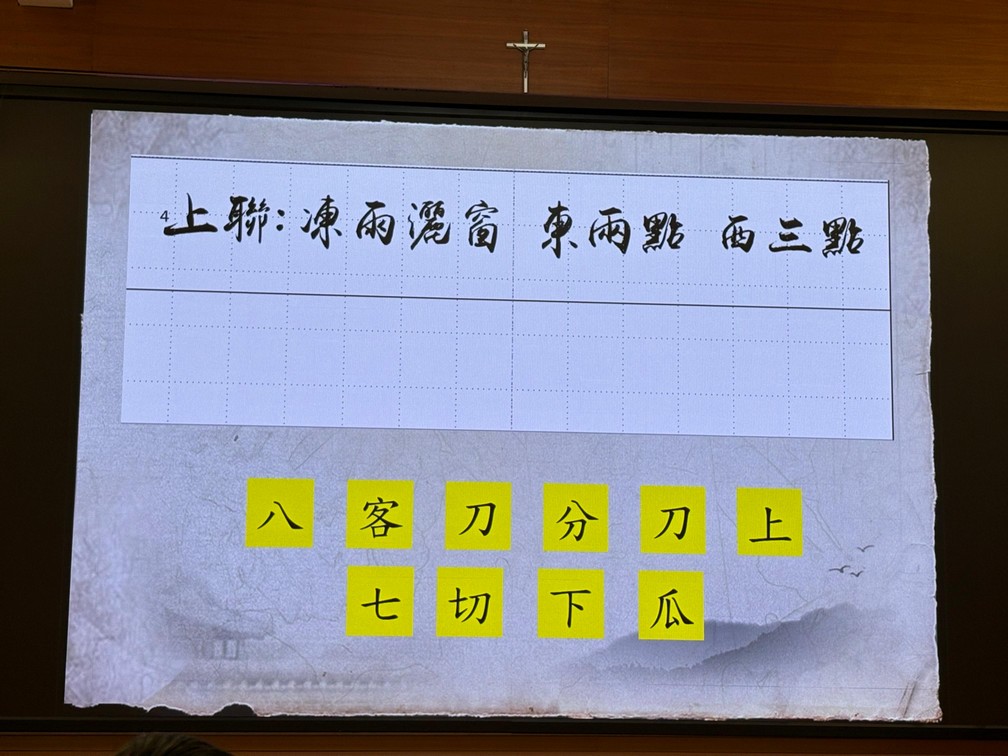 4 上聯:凍雨灑窗 東兩點 西三點
八 客 刀 分 刀 上
七 切 下 瓜